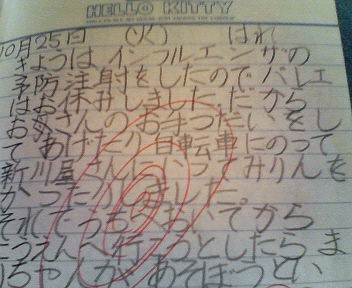 HELLO KITTY
10月25日 (火) はれ
きょうは インフルエンザの
予防注射をしたのでバレエ
はお休みしました。だから
お母さんのお手つだいをし
てあげたり自転車にのって
新川屋さんにいってみりんを
かったりしました
それでうちにおいてから
こうえんへ行こうとしたら ま
りちゃんがあそぼうとい